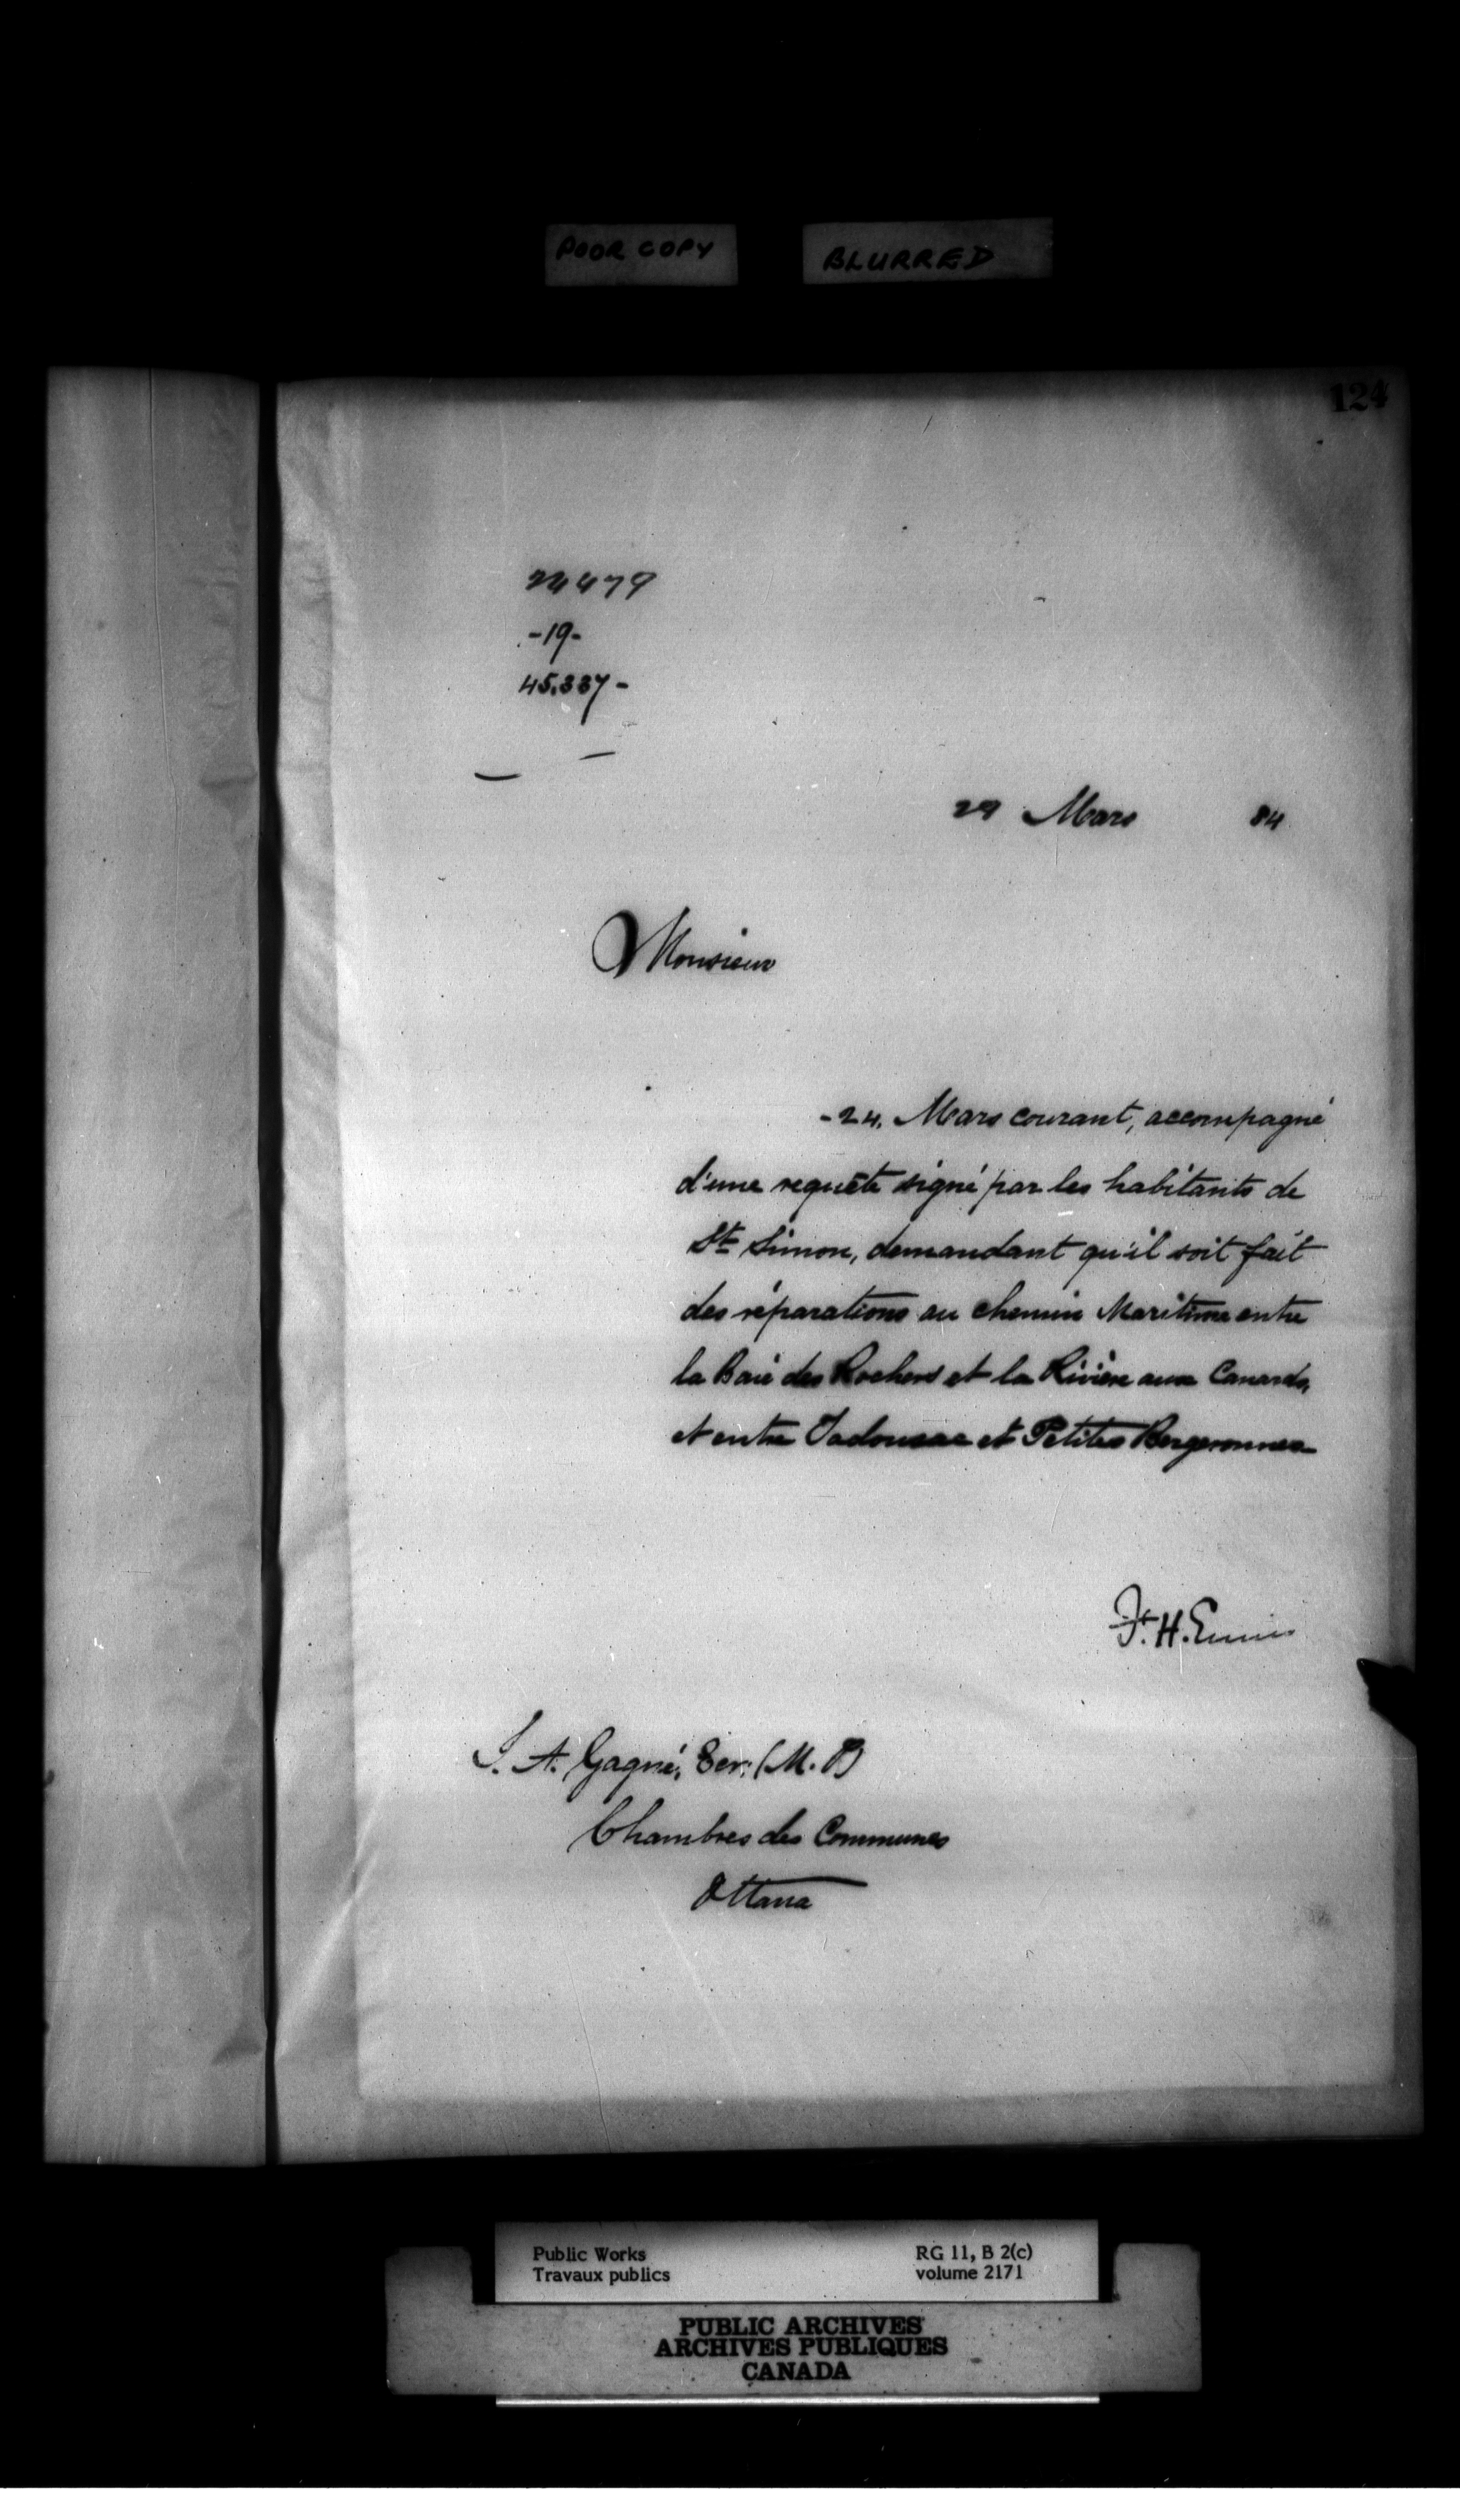 POOR COPY BLURRED
124
24479
-19-
45.337-
29 Mars 84
Monsieur
-24. Mars courant, accompagné
d'une requête signé par les habitants de
St Simon, demandant qu'il soit fait
des réparations au chemin Maritime entre
la Baie des Rochers et la Rivière aux Canards,
et entre Tadousac et Petites Bergeronnes
F. H. Ennis
S. A. Gagné, Ecr. (M. P)
Chambres des Communes
Ottawa
Public Works RG 11, B 2(c)
Travaux publics volume 2171
PUBLIC ARCHIVES
ARCHIVES PUBLIQUES
CANADA